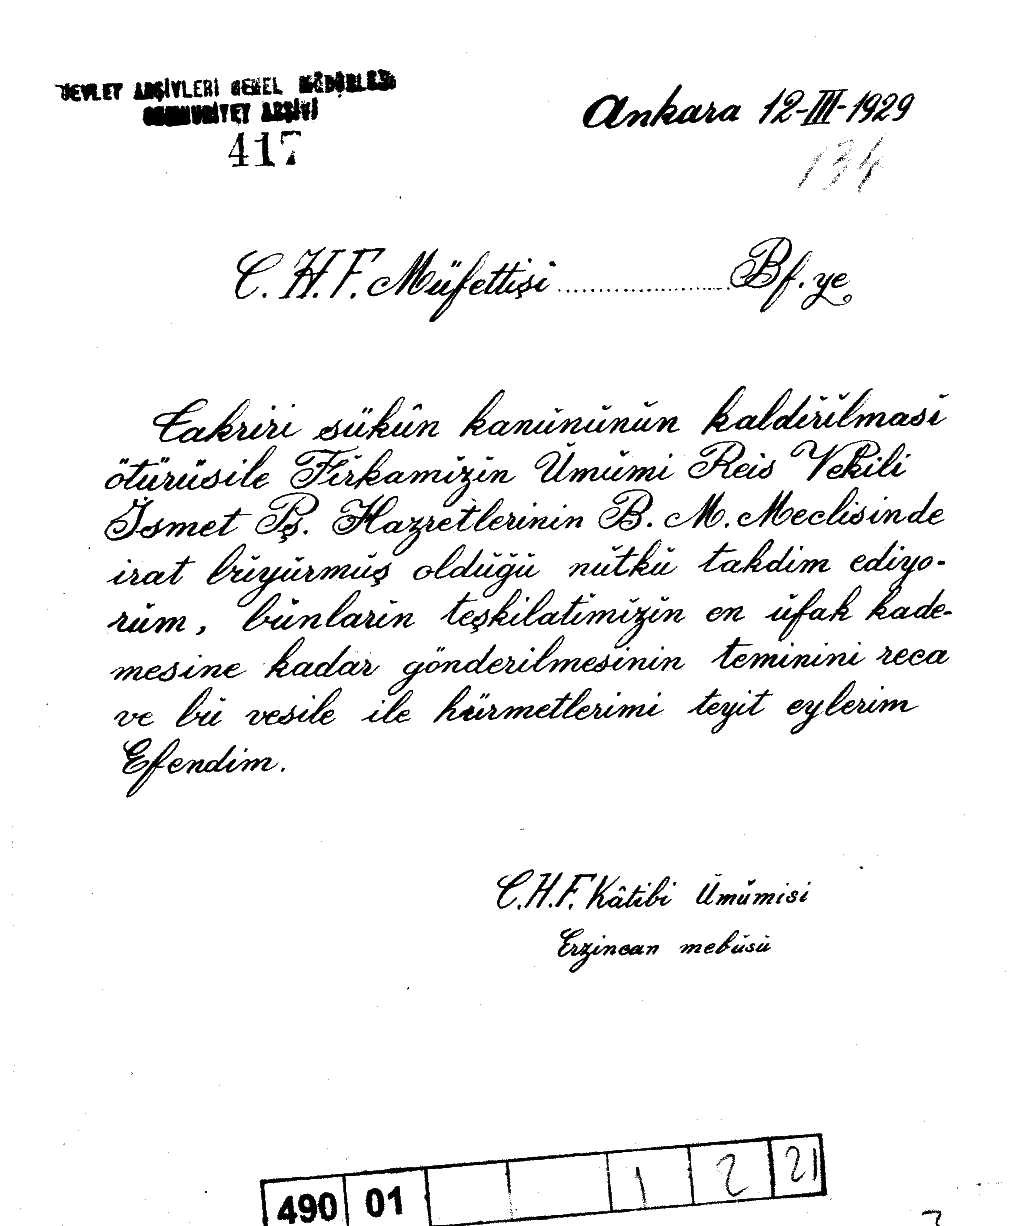 DEVLET ARŞİVLERİ GENEL MÜDÜRLÜĞÜ
CUMHURİYET ARŞİVİ
417
Ankara 12-III-1929
134
C. H. F. Müfettişi ........................ Bf. ye
Takriri sükûn kanŭnŭnŭn kaldĭrĭlmasĭ
ötürüsile Fĭrkamĭzĭn Ŭmŭmi Reis Vekili
İsmet Pş. Hazretlerinin B. M. Meclisinde
irat bŭyŭrmŭş oldŭğŭ nŭtkŭ takdim ediyo-
rŭm, bŭnlarĭn teşkilatĭmĭzĭn en ŭfak kade-
mesine kadar gönderilmesinin teminini reca
ve bŭ vesile ile hürmetlerimi teyit eylerim
Efendim.
C.H.F. Kâtibi Ŭmŭmisi
Erzincan mebŭsŭ
490 01 1 2 21